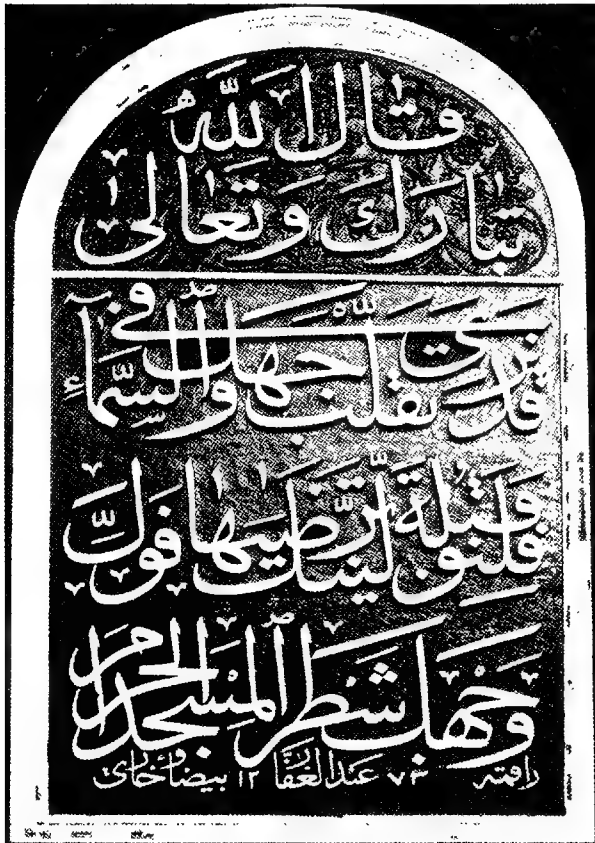 قال الله
تبارك وتعالى
قد نرى تقلب وجهك في السماء
فلنولينك قبلة ترضيها فول
وجهك شطر المسجد الحرام
راقمه ٧٣ عبدالغفار ١٢ بيضاوي